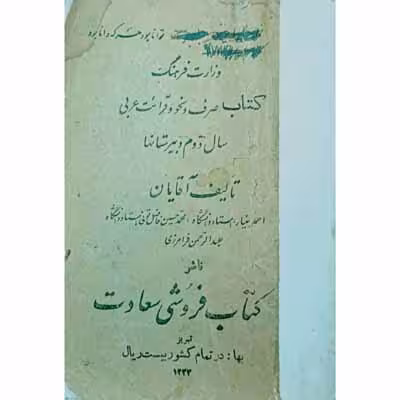 توانا بود هر که دانا بود
وزارت فرهنگ
کتاب صرف و نحو و قرائت عربی
سال دوم دبیرستانها
تالیف آقایان
احمد بهمنیار استاد دانشگاه، محمد حسین فاضل تونی استاد دانشگاه
عبدالرحمن فرامرزی
ناشر
کتاب فروشی سعادت
تبریز
بها: در تمام کشور بیست ریال
۱۳۳۳